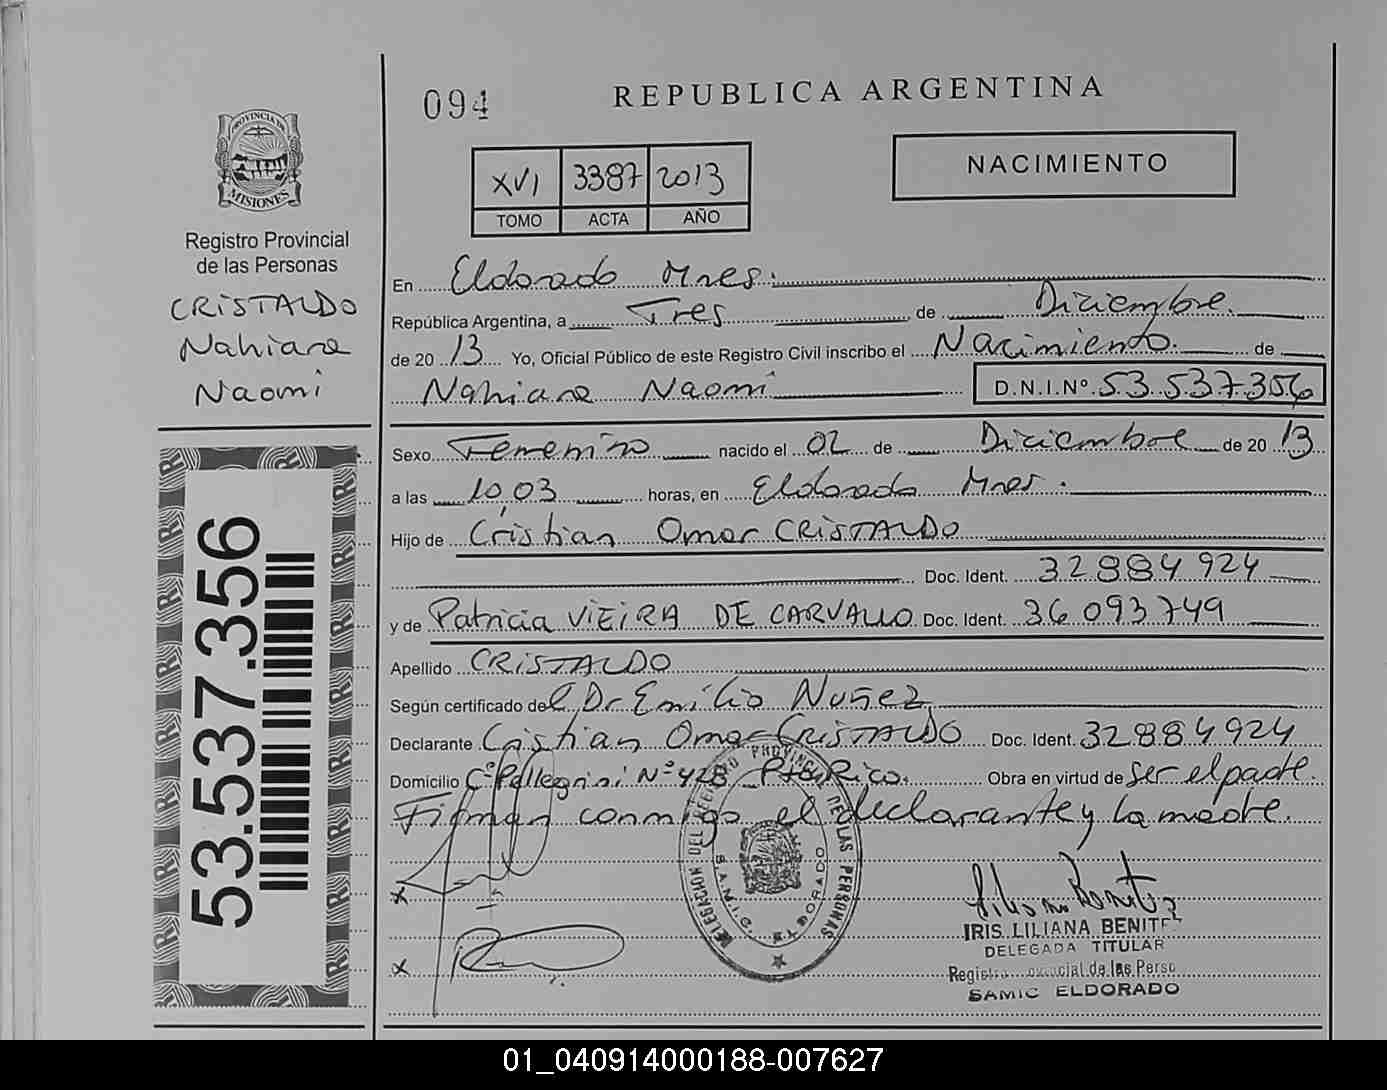 094
REPUBLICA ARGENTINA
PROVINCIA DE
MISIONES
Registro Provincial
de las Personas
CRISTALDO
Nahiara
Naomi
53.537.356
XVI 3387 2013
TOMO ACTA AÑO
NACIMIENTO
En Eldorado Mnes.
República Argentina, a Tres de Diciembre.
de 2013 Yo, Oficial Público de este Registro Civil inscribo el Nacimiento. de
Nahiara Naomi D.N.I.Nº 53.537.356
Sexo Femenino nacido el 02 de Diciembre de 2013
a las 10,03 horas, en Eldorado Mnes.
Hijo de Cristian Omar CRISTALDO
Doc. Ident. 32884924
y de Patricia VIEIRA DE CARVALLO Doc. Ident. 36093749
Apellido CRISTALDO
Según certificado del Dr Emilio Nuñez
Declarante Cristian Omar CRISTALDO Doc. Ident. 32884924
Domicilio Cº Pellegrini Nº 428 Pto Rico. Obra en virtud de ser el padre.
Firman conmigo el declarante y la madre.
DELEGACION DEL REGISTRO PROVINCIAL DE LAS PERSONAS
S.A.M.I.C. ELDORADO
x
x
IRIS LILIANA BENITEZ
DELEGADA TITULAR
Registro Provincial de las Perso
SAMIC ELDORADO
01_040914000188-007627